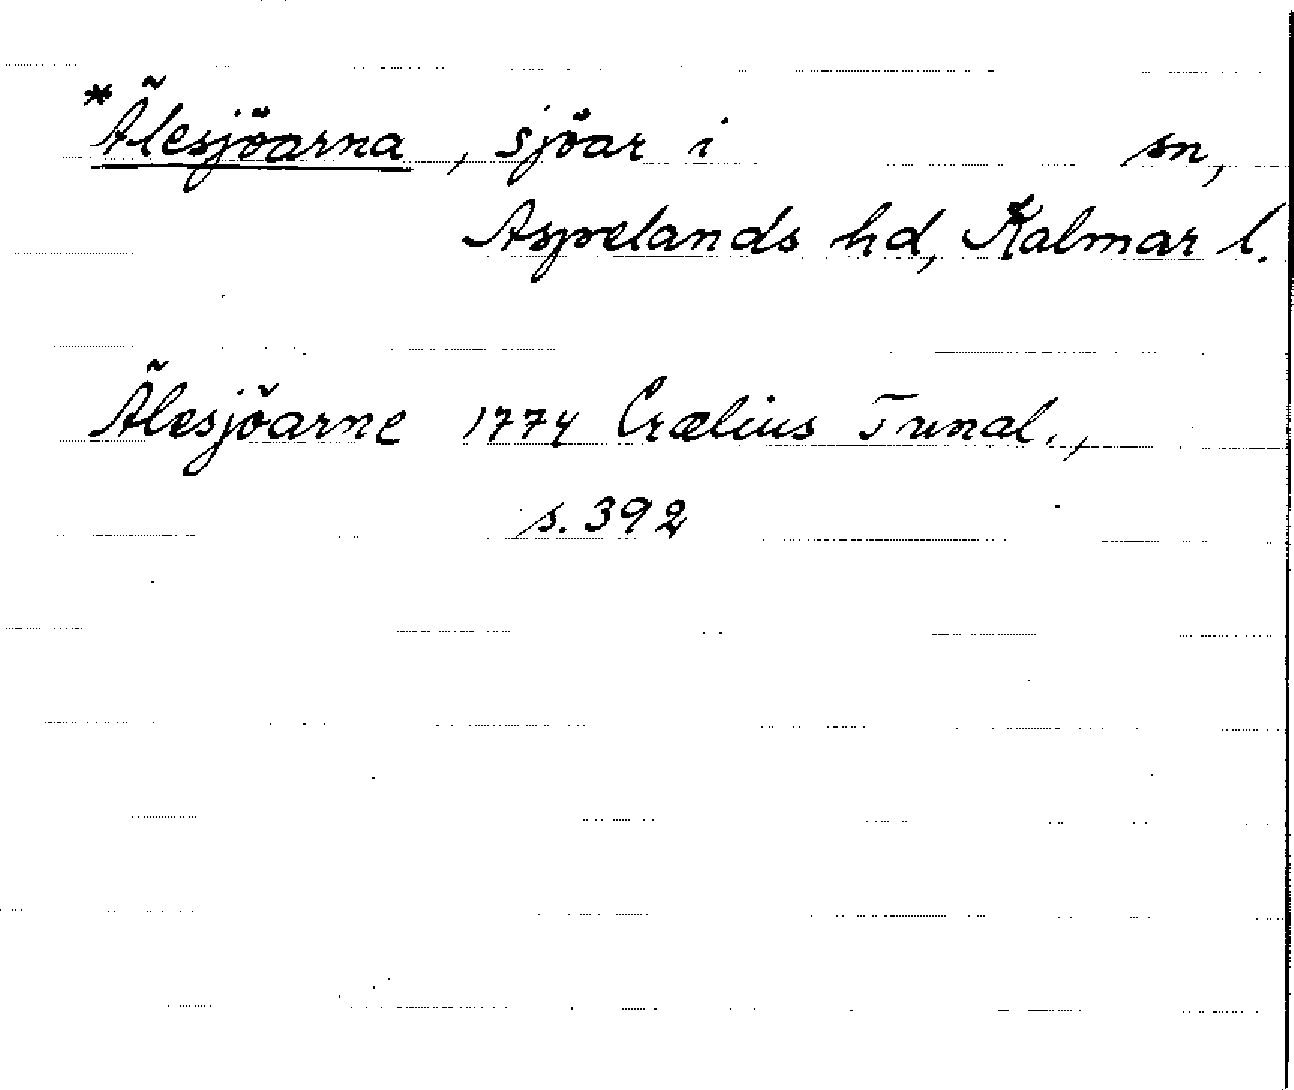 *Älesjöarna, sjöar i sn,
Aspelands hd, Kalmar l.
Älesjöarne 1774 Crælius Tunal.,
s. 392